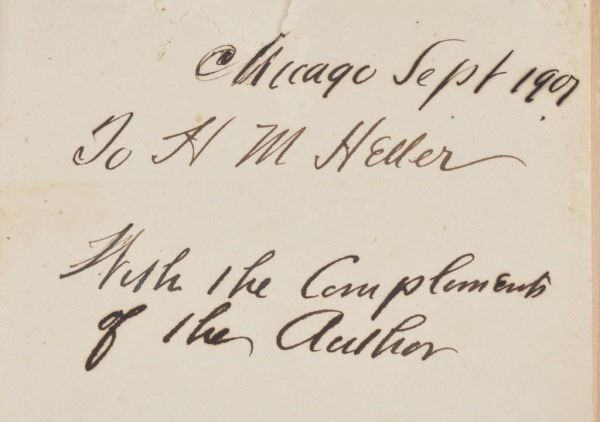 Chicago Sept 1907
To H M Heller
With the Compliments
of the Author